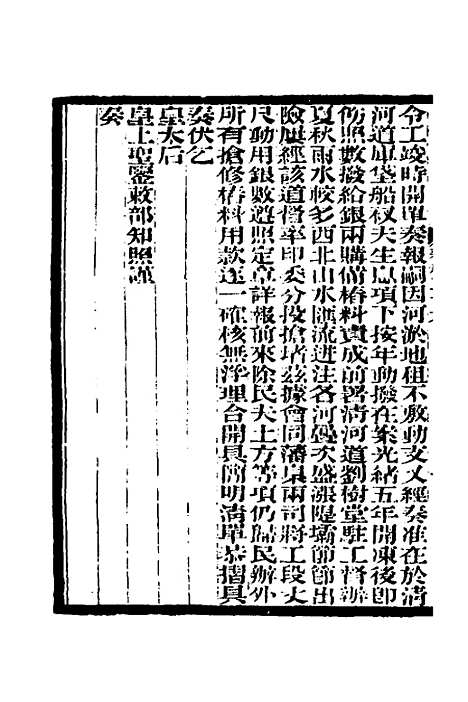 令工竣時開單奏報嗣因河淤地租不敷動支又經奏准在於清
河道庫墊船杈夫生息項下按年動撥在案光緒五年開凍後即
飭照數撥給銀兩購備樁料責成前署清河道劉樹堂駐工督辦
夏秋雨水較多西北山水匯流迸注各河疊次盛漲隄壩節節出
險旋經該道督率印委分投搶堵茲據會同藩臬兩司將工段丈
尺動用銀數遵照定章詳報前來除民夫土方等項仍歸民辦外
所有搶修樁料用款逐一確核無浮理合開具簡明清單恭摺具
奏伏乞
皇太后
皇上聖鑒敕部知照謹
奏